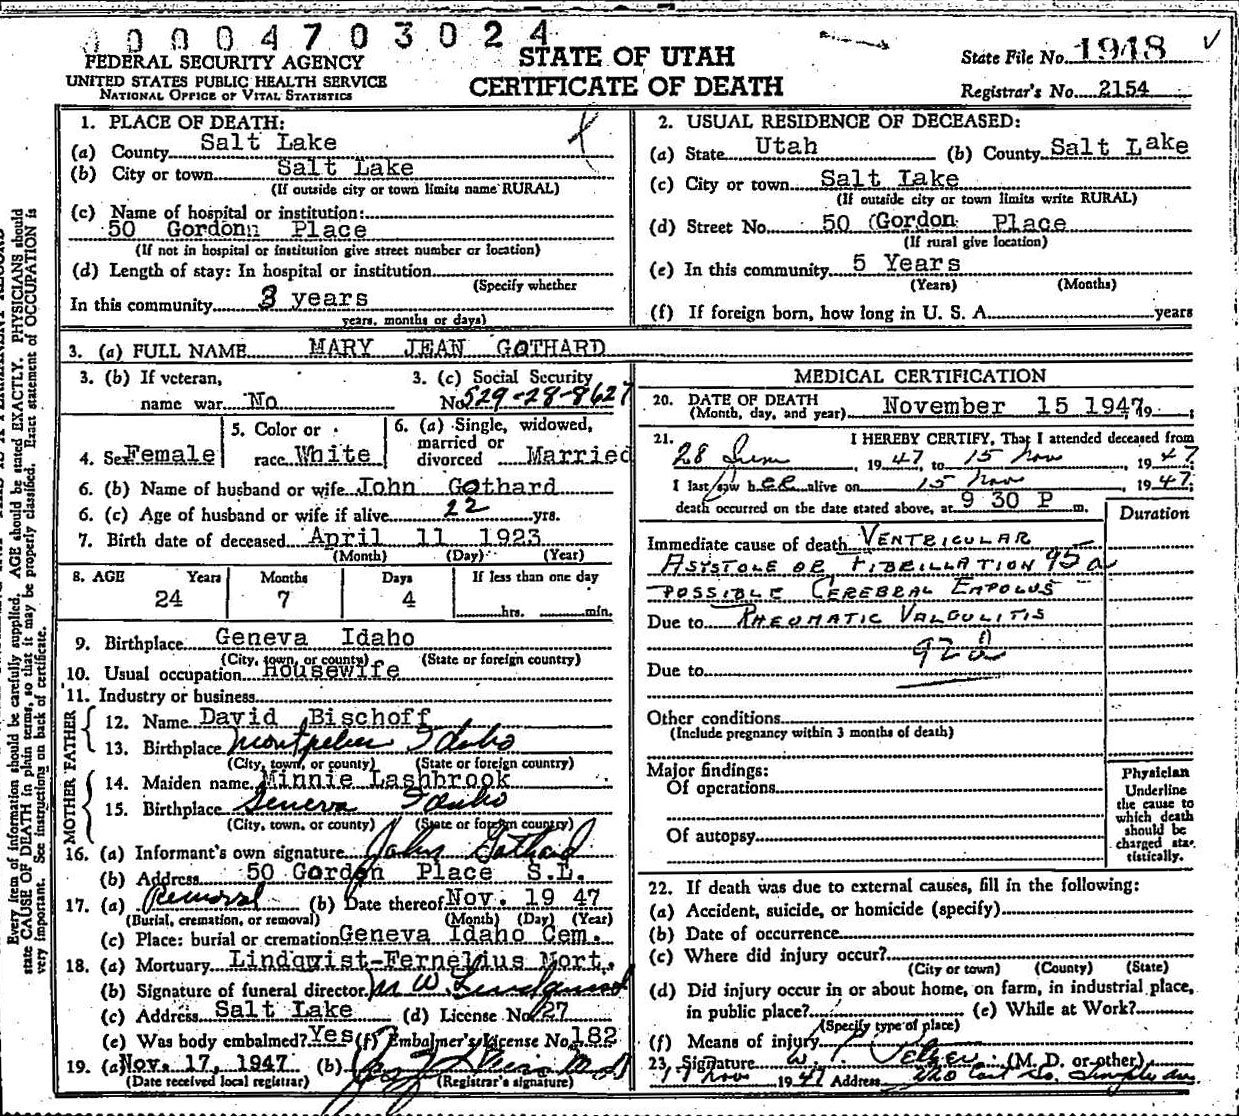 0004703024
FEDERAL SECURITY AGENCY
UNITED STATES PUBLIC HEALTH SERVICE
NATIONAL OFFICE OF VITAL STATISTICS
STATE OF UTAH
CERTIFICATE OF DEATH
State File No. 1918
Registrar's No. 2154
Every item of information should be carefully supplied. AGE should be stated EXACTLY. PHYSICIANS should
state CAUSE OF DEATH in plain terms, so that it may be properly classified. Exact statement of OCCUPATION is
very important. See instructions on back of certificate.
1. PLACE OF DEATH:
(a) County Salt Lake
(b) City or town Salt Lake
(If outside city or town limits name RURAL)
(c) Name of hospital or institution:
50 Gordonn Place
(If not in hospital or institution give street number or location)
(d) Length of stay: In hospital or institution
(Specify whether
In this community 3 years
years, months or days)
2. USUAL RESIDENCE OF DECEASED:
(a) State Utah (b) County Salt Lake
(c) City or town Salt Lake
(If outside city or town limits write RURAL)
(d) Street No. 50 Gordon Place
(If rural give location)
(e) In this community 5 Years
(Years) (Months)
(f) If foreign born, how long in U. S. A. years
3. (a) FULL NAME MARY JEAN GOTHARD
3. (b) If veteran, 3. (c) Social Security
name war No No. 529-28-8627
4. Sex Female 5. Color or race White 6. (a) Single, widowed, married or divorced Married
6. (b) Name of husband or wife John Gothard
6. (c) Age of husband or wife if alive 22 yrs.
7. Birth date of deceased April 11 1923
(Month) (Day) (Year)
8. AGE Years Months Days If less than one day
24 7 4 hrs. min.
9. Birthplace Geneva Idaho
(City, town, or county) (State or foreign country)
10. Usual occupation Housewife
11. Industry or business
FATHER
12. Name David Bischoff
13. Birthplace Montpelier Idaho
(City, town, or county) (State or foreign country)
MOTHER
14. Maiden name Minnie Lashbrook
15. Birthplace Geneva Idaho
(City, town, or county) (State or foreign country)
16. (a) Informant's own signature John Gothard
(b) Address 50 Gordon Place S.L.
17. (a) Removal (b) Date thereof Nov. 19 47
(Burial, cremation, or removal) (Month) (Day) (Year)
(c) Place: burial or cremation Geneva Idaho Cem.
18. (a) Mortuary Lindqwist-Fernelius Mort.
(b) Signature of funeral director M W Lindquist
(c) Address Salt Lake (d) License No. 127
(e) Was body embalmed? Yes (f) Embalmer's License No. 182
19. (a) Nov. 17, 1947 (b)
(Date received local registrar) (Registrar's signature)
MEDICAL CERTIFICATION
20. DATE OF DEATH
(Month, day, and year) November 15 1947, 19 ;
21. I HEREBY CERTIFY, That I attended deceased from
28 June, 1947 to 15 Nov, 1947;
I last saw her alive on 15 Nov 1947;
death occurred on the date stated above, at 9 30 P m.
Duration
Immediate cause of death VENTRICULAR
ASYSTOLE OR FIBRILLATION 95a
POSSIBLE CEREBRAL EMPOLUS
Due to RHEUMATIC VALVULITIS
92a
Due to
Other conditions
(Include pregnancy within 3 months of death)
Major findings:
Of operations
Of autopsy
Physician
Underline
the cause to
which death
should be
charged sta-
tistically.
22. If death was due to external causes, fill in the following:
(a) Accident, suicide, or homicide (specify)
(b) Date of occurrence
(c) Where did injury occur?
(City or town) (County) (State)
(d) Did injury occur in or about home, on farm, in industrial place,
in public place? (e) While at Work?
(Specify type of place)
(f) Means of injury
23. Signature (M. D. or other)
17 Nov 1947 Address